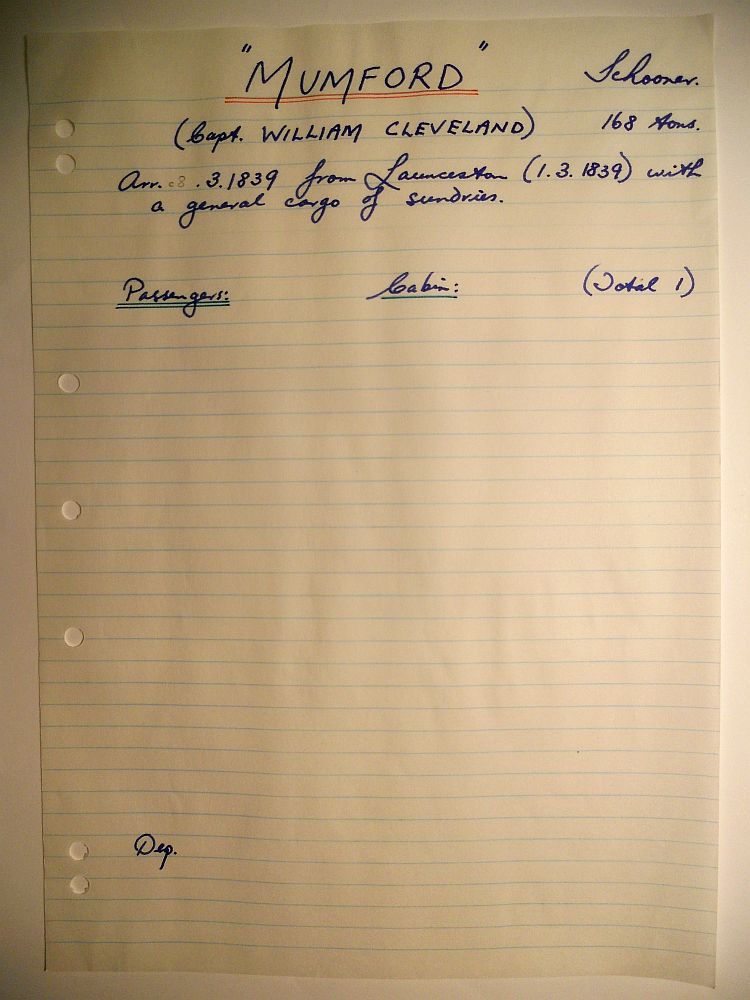 "MUMFORD" Schooner.
(Capt. WILLIAM CLEVELAND) 168 tons.
Arr. 8.3.1839 from Launceston (1.3.1839) with
a general cargo of sundries.
Passengers: Cabin: (Total 1)
Dep.